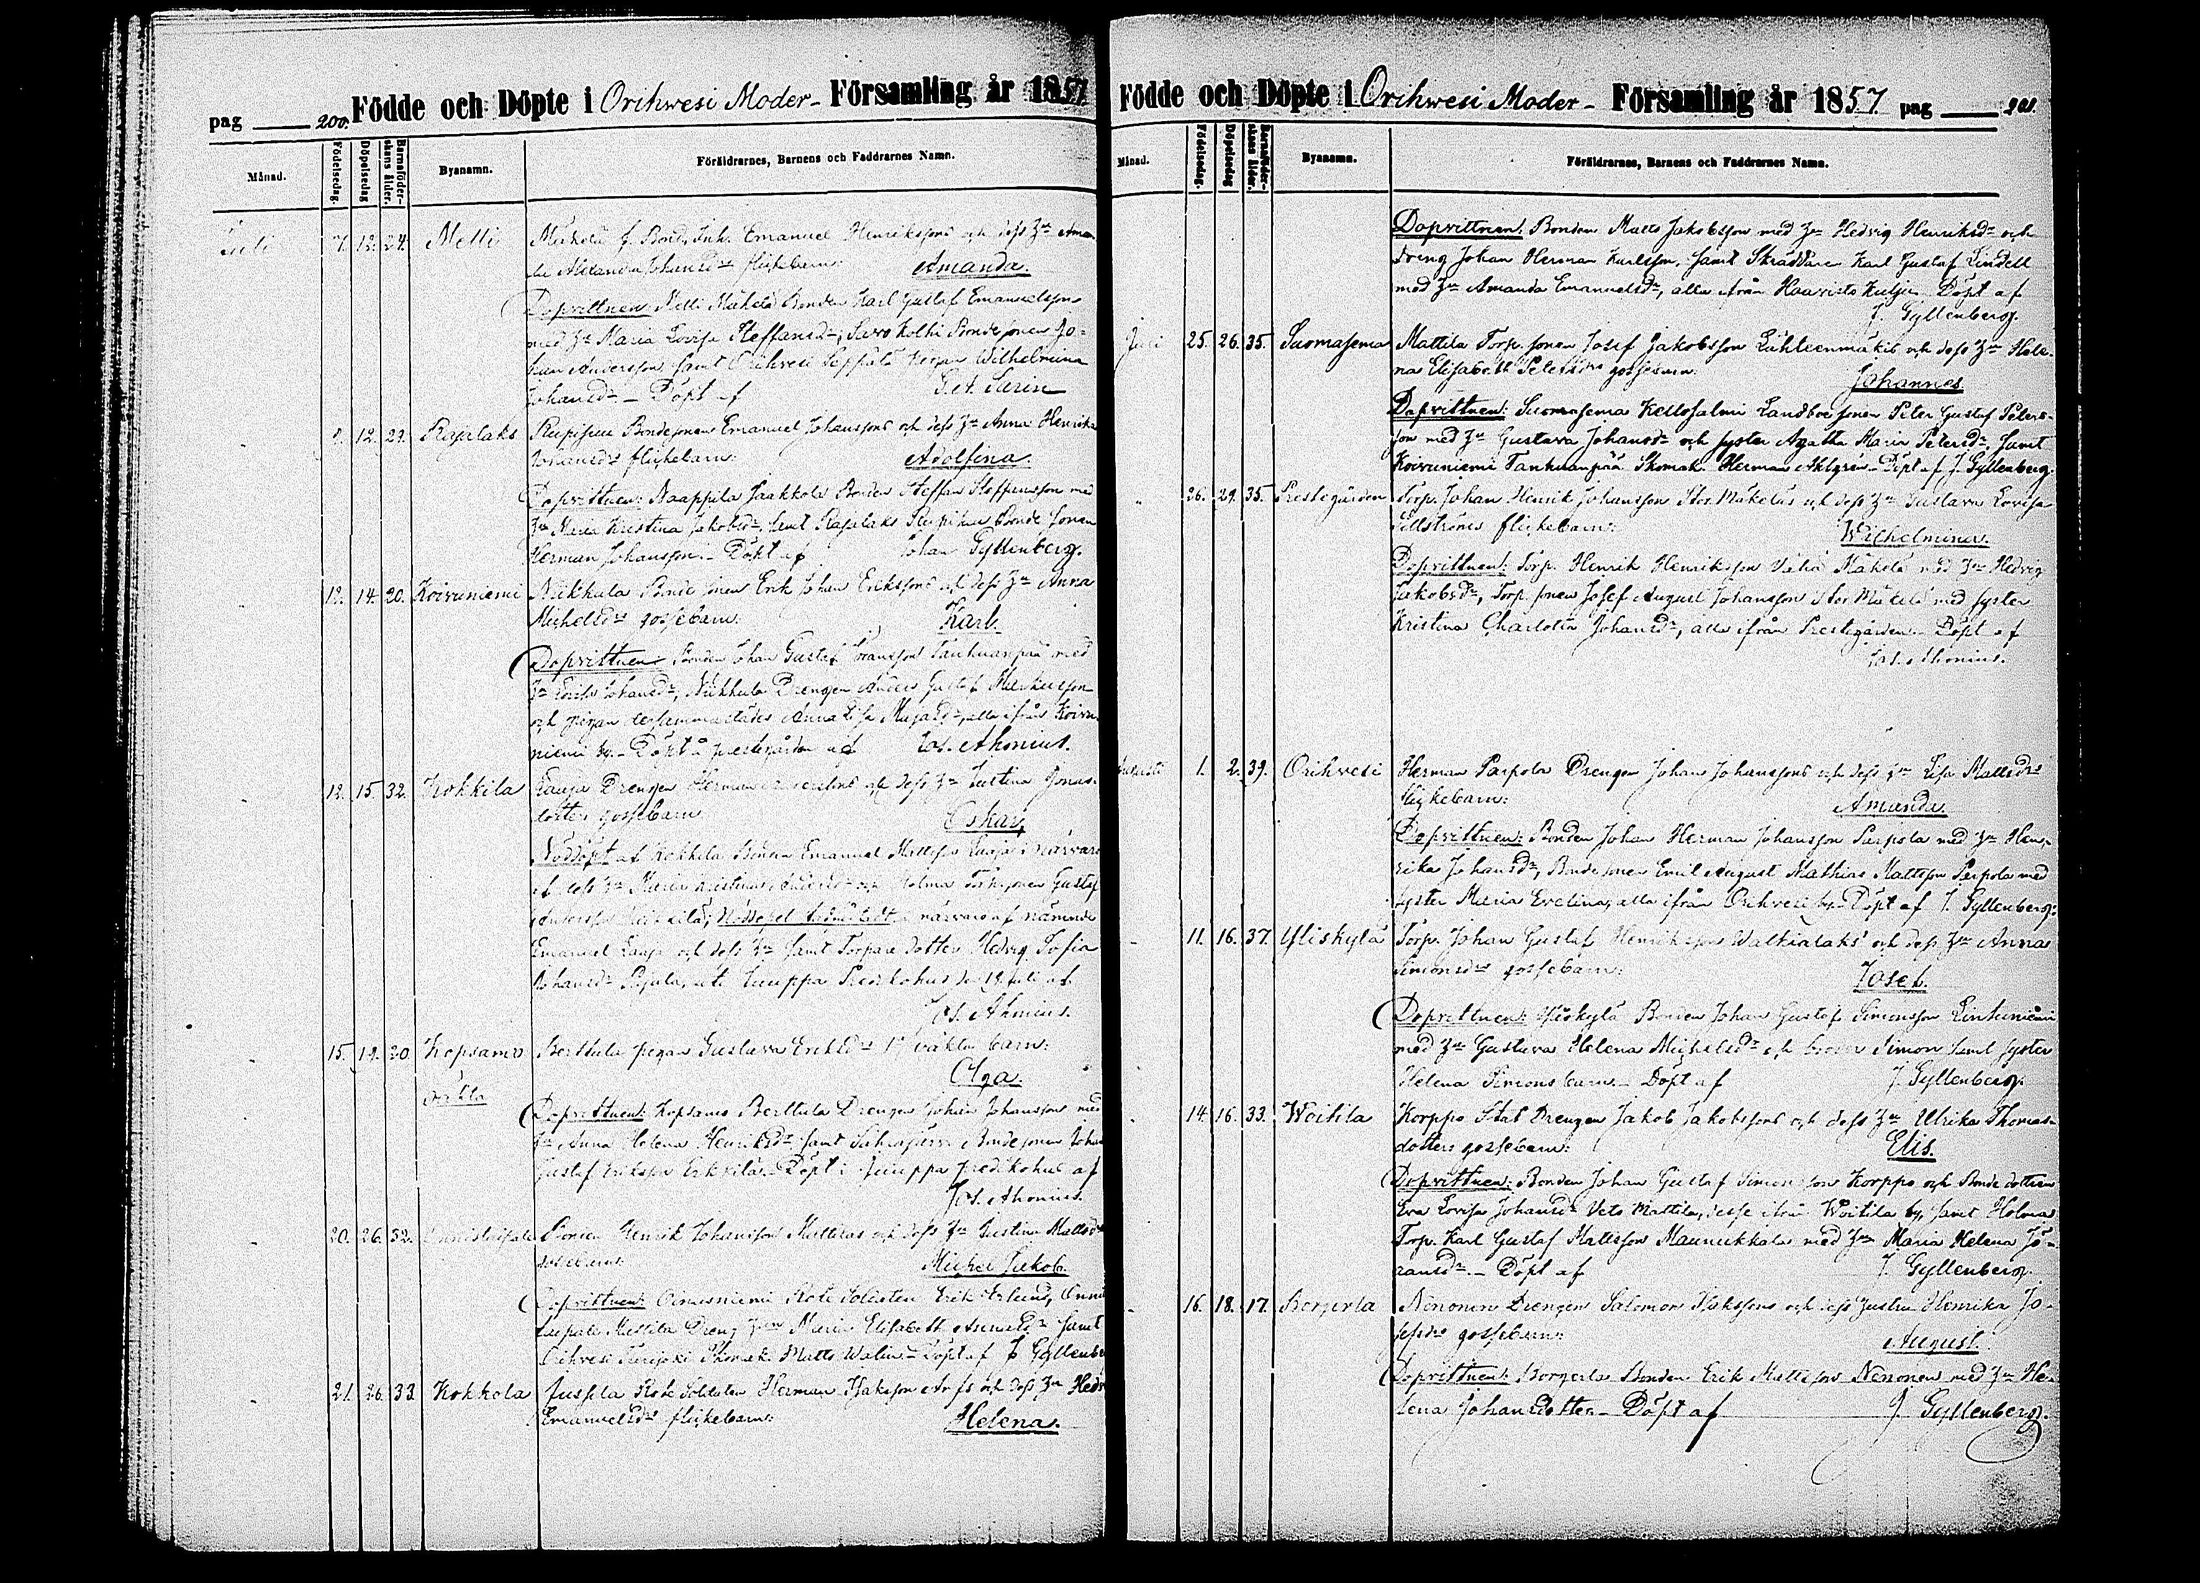 pag 200. Födde och Döpte i Orihwesi Moder- Församling år 1857
Månad.
Födelsedag.
Döpelsedag
Barnaföderskans ålder.
Byanamn.
Föräldrarnes, Barnens och Faddrarnes Namn.
Juli 7. 12. 24. Metti Mäkelä f. Bond. Inh. Emanuel Henrikssons och dess Hu Aman-
da Alexandra Johansdrs flickebarn: Amanda.
Dopvittnen: Metti Mäkelä Bonden Karl Gustaf Emanuelsson
med Hu Maria Lovisa Steffansdr, Savo Kolhi Bondesonen Jo-
han Andersson, samt Orihvesi Seppälä Wilhelmina
Johansdr – Döpt af
12. 29. Rajalaks Bondesonen Emanuel Johanssons och dess Hu Anna Henrika
Johansdrs flickebarn: Adolfina.
Dopvittnen: Naappila Jaakkola Bonden Steffan Steffansson med
Hu Maria Kristina Jakobsdr, samt Rajalaks Bonde sonen
Herman Johansson. – Döpt af Johan Gyllenberg.
12. 14. 20. Koivuniemi Nikkula Bonde sonen Erik Johan Erikssons och dess Hu Anna
Michelsdrs gossebarn: Karl.
Dopvittnen: Bonden Johan Gustaf Göransson Tankuanpää med
Hu Lovisa Johansdr, Nikkula Drengen Anders Gustaf
och pigan Anna Lisa alla ifrån Koivu-
niemi by. – Döpt å prestgården af Jos. Ahonius.
12. 15. 32. Kokkila Kauja Drengen Herman och dess Hu Justina Jonas-
dotters gossebarn Oskar,
Nöddöpt af Kokkila Bonden Emanuel Mattsson i närvaro
af dess Hu Maria Kristina och Holma Torp. sonen Gustaf
Andersson Nöddopet i närvaro af nämnde
Emanuel och dess Hu samt Torpare dotter Hedvig Sofia
Johansdr uti Predikohus den 18 Juli af
Jos. Ahonius.
15. 19. 20 Kopsamo Berttula pigan Gustava Eriksdrs 1sta oäkta barn:
oäkta Olga.
Dopvittnen: Kopsamo Berttula Drengen Johan Johansson med
Hu Anna Helena Henriksdr samt Bonde sonen Johan
Gustaf Eriksson Erkkilä. – Döpt i predikohus af
Jos. Ahonius.
20. 26. 32. Bonden Henrik Johansson och dess Hu Justina Mattsdrs
gossebarn: Michel Jakob.
Dopvittnen: Rote Soldaten Erik
Mattila Dreng Hun Maria Elisabeth samt
Orihvesi Skomak. Matts Walin – Döpt af J. Gyllenberg
21. 26. 33. Kokkola Jussila Rote Soldaten Herman Isaksson och dess Hu Hedvig
Emanuelsdrs flickebarn: Helena.
Födde och Döpte i Orihwesi Moder- Församling år 1857 pag 201.
Månad.
Födelsedag.
Döpelsedag
Barnaföderskans ålder.
Byanamn.
Föräldrarnes, Barnens och Faddrarnes Namn.
Dopvittnen: Bonden Matts Jakobsson med Hu Hedvig Henriksdr och
dreng Johan Herman Karlsson, samt Skräddare Karl Gustaf Lindell
med Hu Amanda Emanuelsdr, alla ifrån Haavisto Kutju. Döpt af
J. Gyllenberg.
Juli 25. 26. 35. Suomasema Mattila Torp. sonen Josef Jakobsson Lähteenmäkis och dess Hu Hele-
na Elisabeth Petersdrs gossebarn: Johannes.
Dopvittnen: Suomasema Kellosalmi Landboe sonen Peter Gustaf Peters-
son med Hu Gustava Johansdr och syster Agatha Maria Petersdr, samt
Koivuniemi Tankuanpää Skomak. Herman Ahlgren – Döpt af J. Gyllenberg.
26. 29. 35. Prestegården Torp. Johan Henrik Johansson Stor Mäkeläs och dess Hu Gustava Lovisa
Sillströms flickebarn: Wilhelmina.
Dopvittnen: Torp. Henrik Henriksson Mäkelä med Hu Hedvig
Jakobsdr, Torp. sonen Josef August Johansson Stor Mäkelä med syster
Kristina Charlotta Johansdr, alla ifrån Prestegården. Döpt af
Jos. Ahonius.
Augusti 1. 2. 39. Orihvesi Herman Parpola Drengen Johan Johanssons och dess Hu Lisa Mattsdrs
flickebarn: Amanda.
Dopvittnen: Bonden Johan Herman Johansson Parpola med Hu Hen-
rika Johansdr, Bonde sonen Emil August Mathias Mattsson Parpola med
syster Maria Evelina, alla ifrån Orihvesi by. – Döpt af J. Gyllenberg.
11. 16. 37. Yliskylä Torp. Johan Gustaf Henrikssons Walkialaks och dess Hu Anna
Simonsdrs gossebarn: Josef.
Dopvittnen: Yliskylä Bonden Johan Gustaf Simonsson Lintuniemi
med Hu Gustava Helena Michelsdr och broder Simon samt syster
Helena Simonsbarn. – Döpt af J. Gyllenberg.
14. 16. 33. Woitila Korppo Stat Drengen Jakob Jakobssons och dess Hu Ulrika Thomas-
dotters gossebarn: Elis.
Dopvittnen: Bonden Johan Gustaf Simonsson Korppo och Bonde dottren
Eva Lovisa Johansdr Veto Mattila, desse ifrån Woitila by, samt Holma
Torp. Karl Gustaf Mattsson Mannikkala med Hun Maria Helena Gö-
ransdr. – Döpt af J. Gyllenberg.
16. 18. 17. Borjerla Nenonen Drengen Salomon Isakssons och dess hustru Henrika Jo-
sefsdrs gossebarn: August.
Dopvittnen: Borjerla Bonden Erik Mattsson Nenonen med Hu He-
lena Johansdotter – Döpt af J. Gyllenberg.